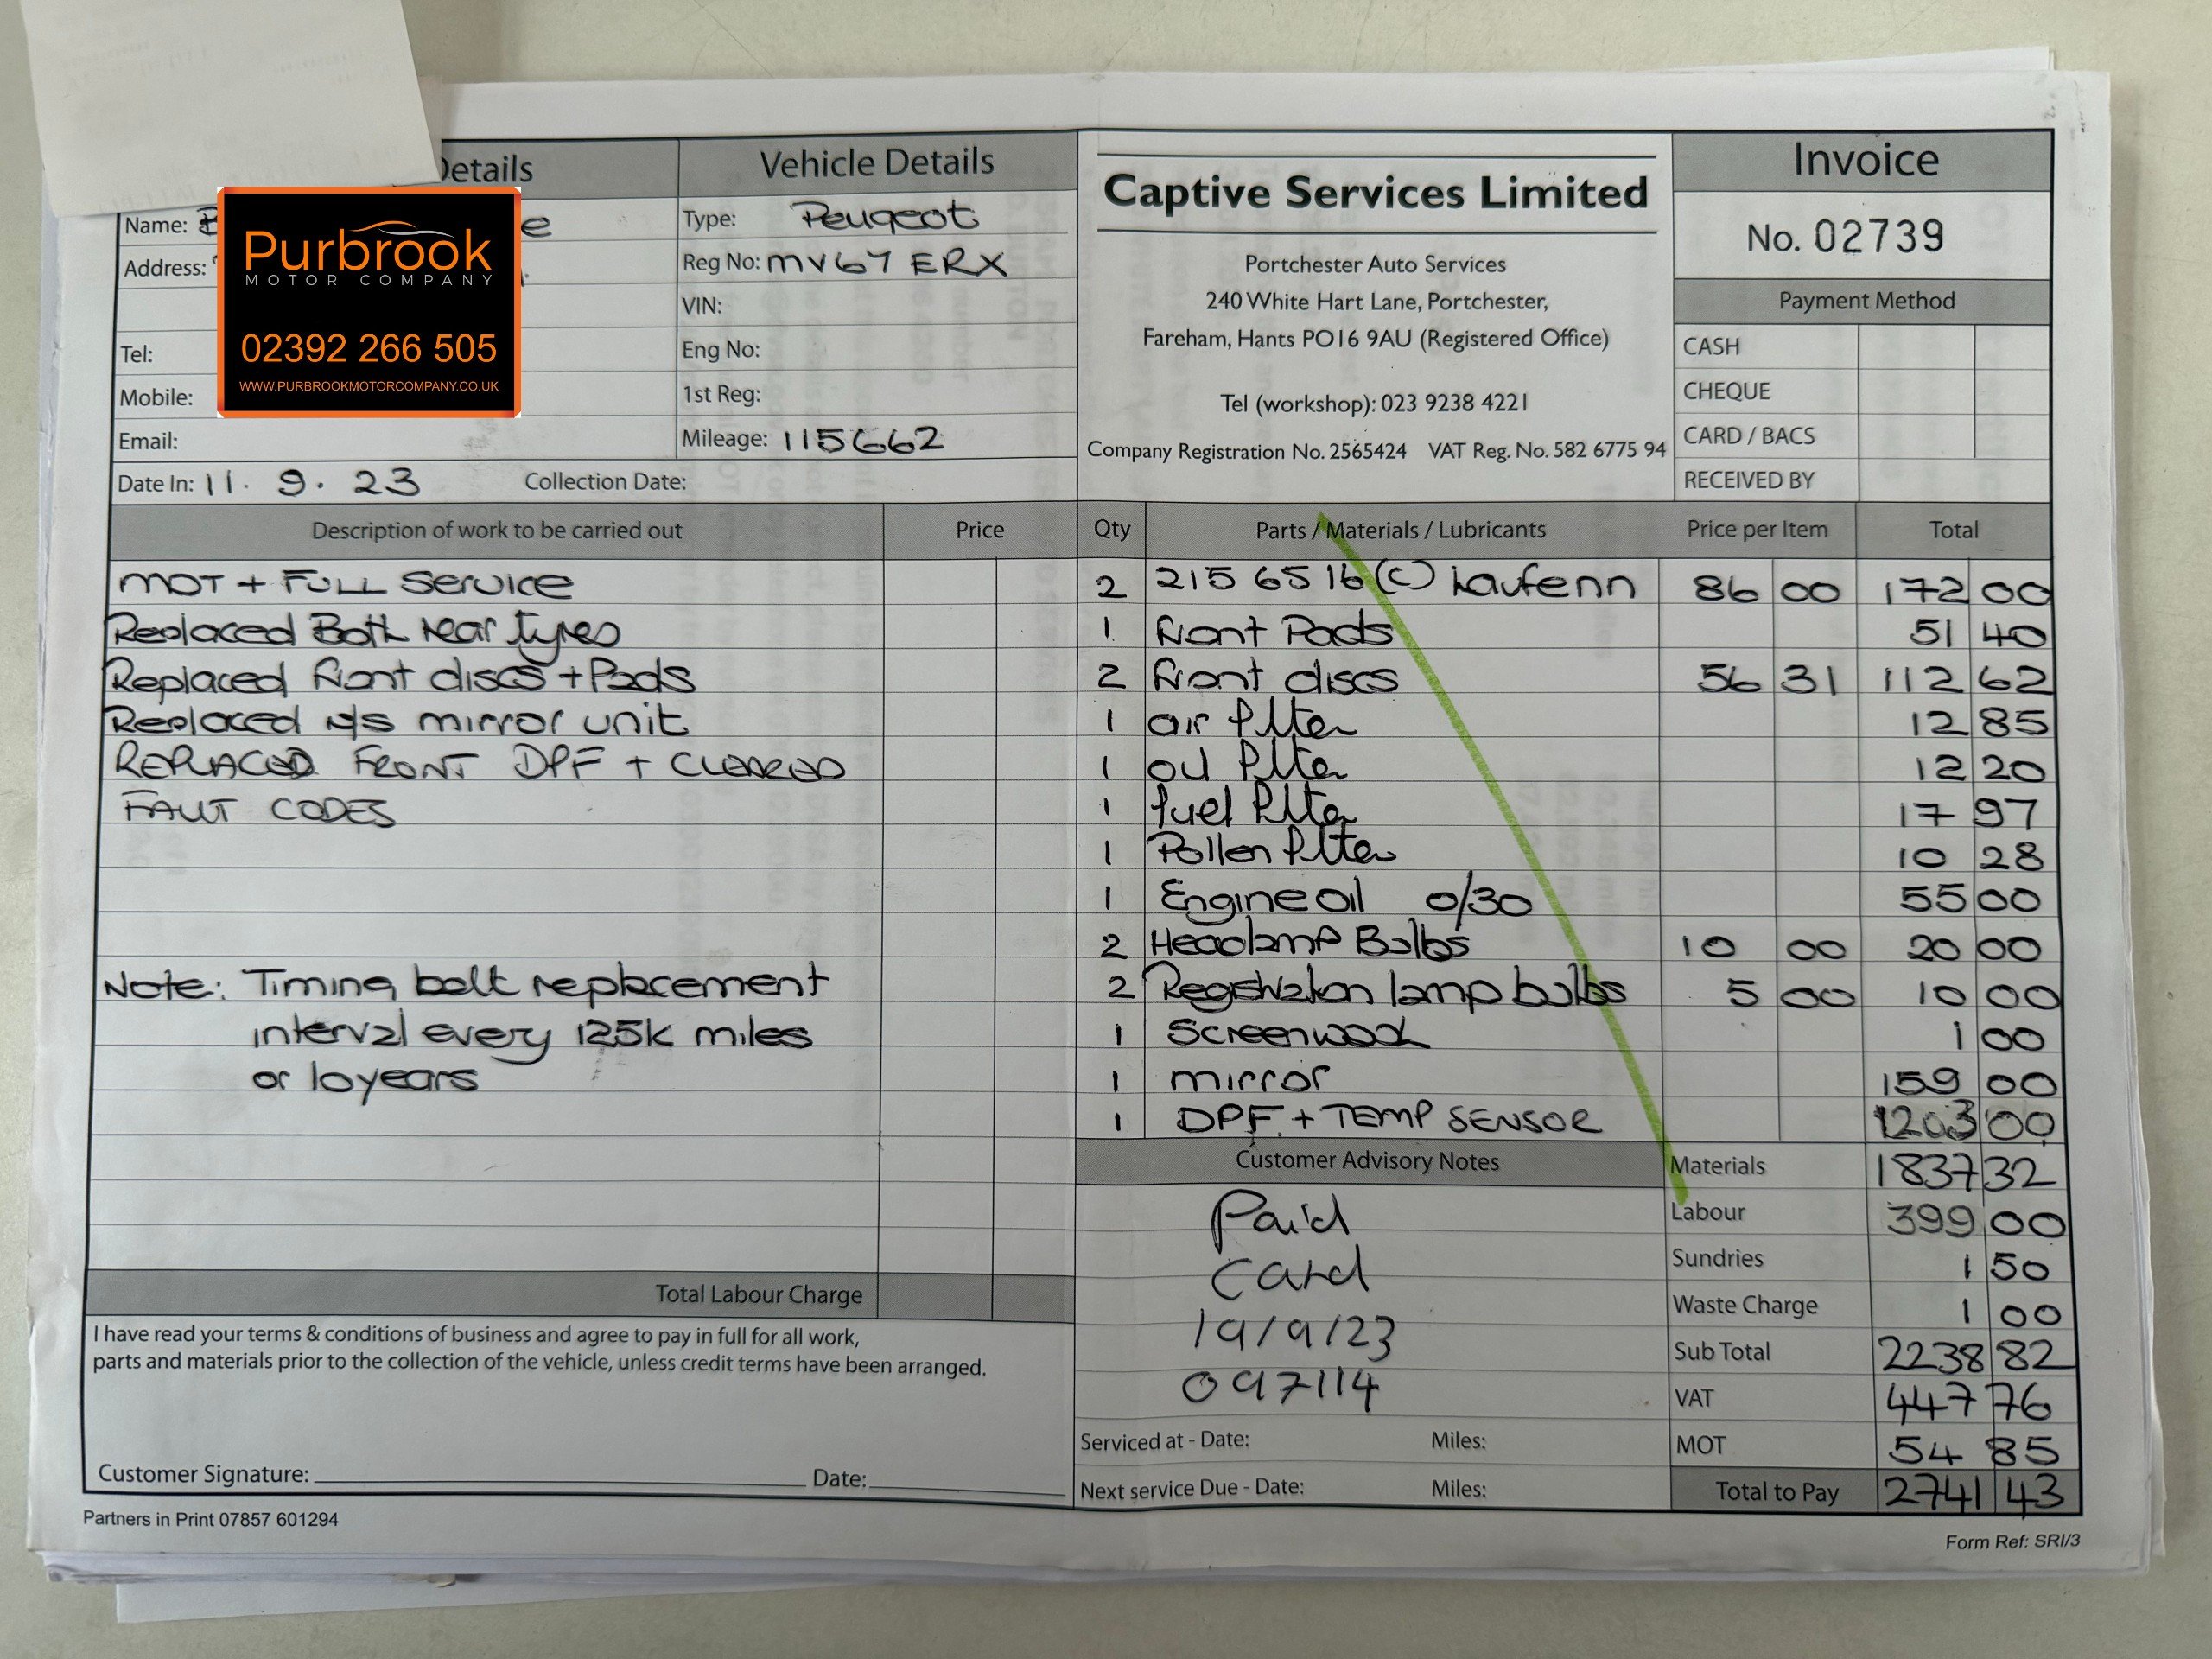 Details
Name: B e
Address:
Tel:
Mobile:
Email:
Date In: 11. 9. 23 Collection Date:
Purbrook
MOTOR COMPANY
02392 266 505
WWW.PURBROOKMOTORCOMPANY.CO.UK
Vehicle Details
Type: Peugeot
Reg No: MV67 ERX
VIN:
Eng No:
1st Reg:
Mileage: 115662
Captive Services Limited
Portchester Auto Services
240 White Hart Lane, Portchester,
Fareham, Hants PO16 9AU (Registered Office)
Tel (workshop): 023 9238 4221
Company Registration No. 2565424 VAT Reg. No. 582 6775 94
Invoice
No. 02739
Payment Method
CASH
CHEQUE
CARD / BACS
RECEIVED BY
Description of work to be carried out Price
MOT + FULL Service
Replaced Both rear tyres
Replaced front discs + Pads
Replaced N/S mirror unit
REPLACED FRONT DPF + CLEARED
FAULT CODES
Note: Timing belt replacement
interval every 125K miles
or 10 years
Total Labour Charge
I have read your terms & conditions of business and agree to pay in full for all work,
parts and materials prior to the collection of the vehicle, unless credit terms have been arranged.
Customer Signature: Date:
Partners in Print 07857 601294
Qty Parts / Materials / Lubricants Price per Item Total
2 215 65 16 (C) Laufenn 86 00 172 00
1 front Pads 51 40
2 front discs 56 31 112 62
1 air filter 12 85
1 oil filter 12 20
1 fuel filter 17 97
1 Pollen filter 10 28
1 Engine oil 0/30 55 00
2 Headlamp Bulbs 10 00 20 00
2 Registration lamp bulbs 5 00 10 00
1 Screenwash 1 00
1 mirror 159 00
1 DPF + TEMP SENSOR 1203 00
Customer Advisory Notes
Paid
Card
19/9/23
097114
Serviced at - Date: Miles:
Next service Due - Date: Miles:
Materials 1837 32
Labour 399 00
Sundries 1 50
Waste Charge 1 00
Sub Total 2238 82
VAT 447 76
MOT 54 85
Total to Pay 2741 43
Form Ref: SRI/3